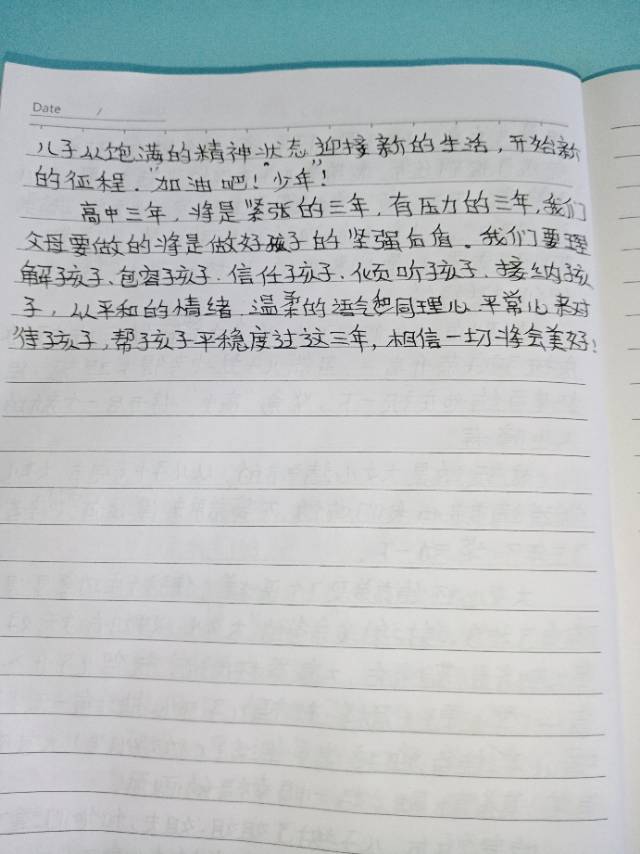 Date /
儿子从饱满的精神状态迎接新的生活，开始新
的征程。"加油吧！少年！"
高中三年，将是紧张的三年，有压力的三年，我们
父母要做的将是做好孩子的坚强后盾。我们要理
解孩子、包容孩子、信任孩子、倾听孩子、接纳孩
子，从平和的情绪、温柔的语气和同理心、平常心来对
待孩子，帮孩子平稳度过这三年，相信一切将会美好！